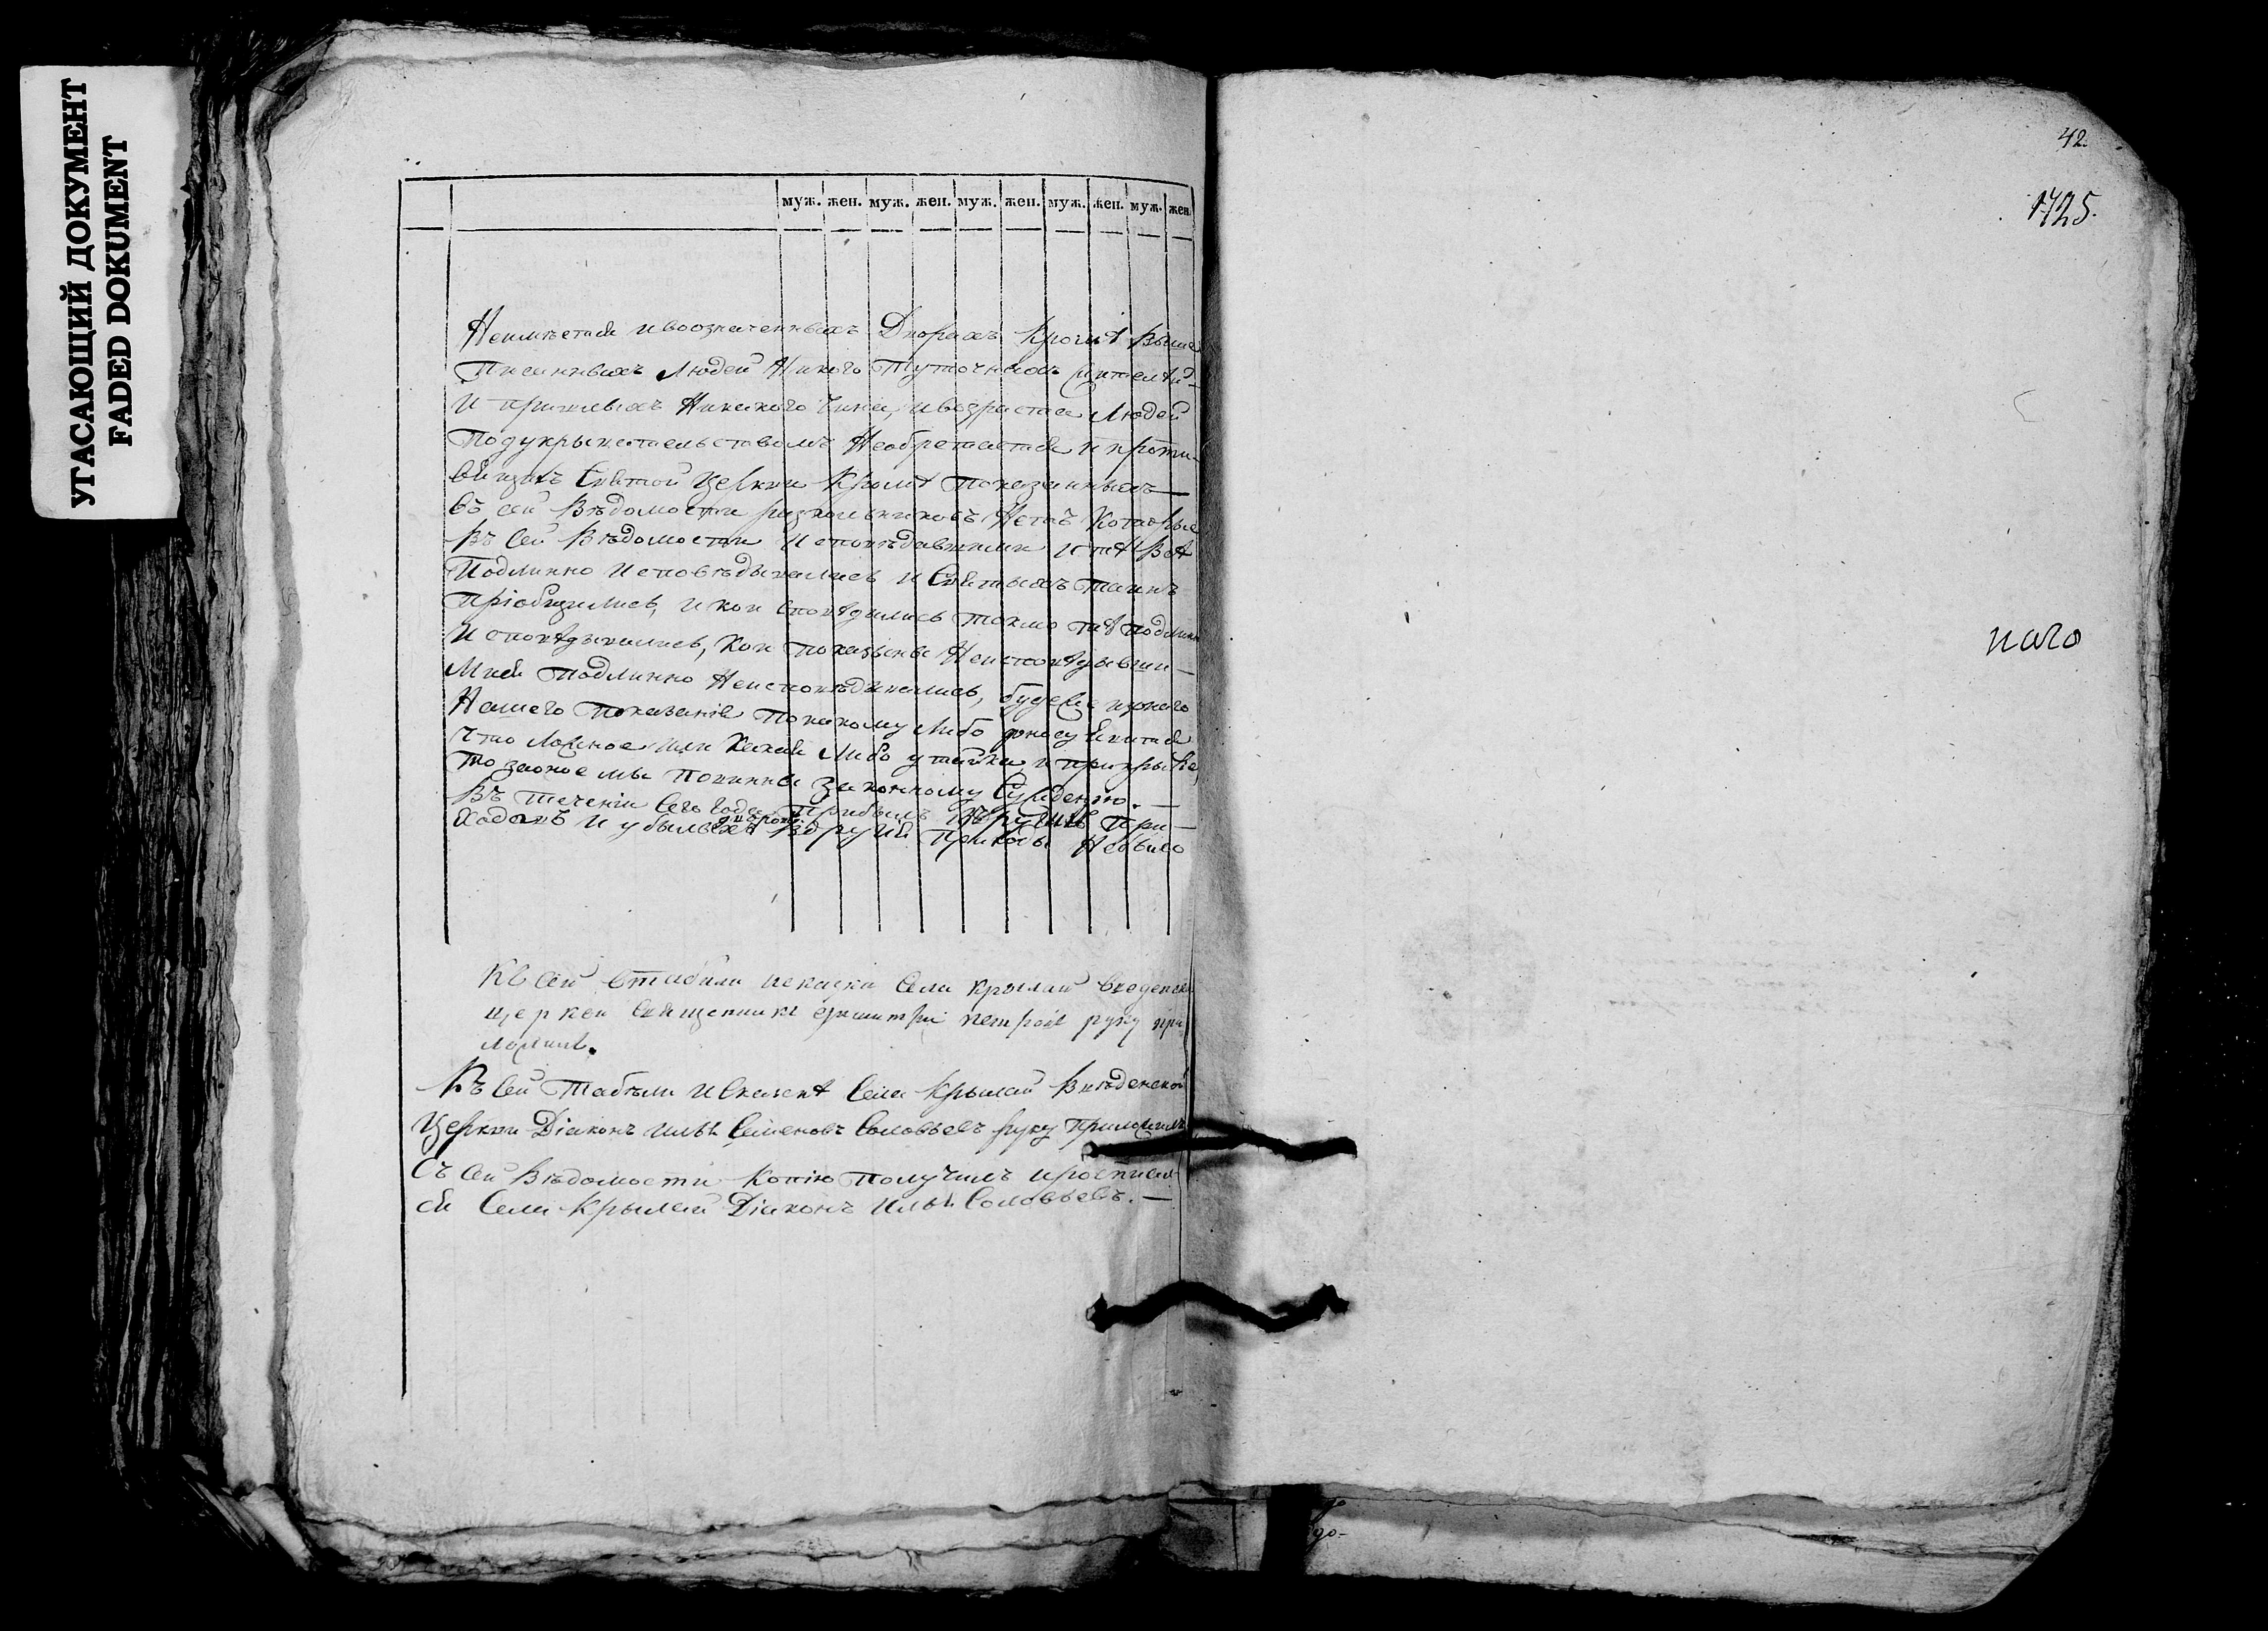 УГАСАЮЩИЙ ДОКУМЕНТ
FADED DOKUMENT
муж. жен. муж. жен. муж. жен. муж. жен. муж. жен.
Неимѣется ивоозначенныхъ Дворахъ Кромѣ Выше
Писанныхъ Людей Никого Туточныхъ
И пришлыхъ Никакого Чина, ивозраста Людей
Подукрывательствомъ Необретается и проти-
вящихъ Святой Церкви Кромѣ Показанныхъ
въ сей Вѣдомости разкольниковъ Нетъ Которые
Въ Сей Вѣдомости Исповѣдавшими и тѣ Всѣ
Подлинно Исповѣдывались и Святыхъ Таинъ
Пріобщились, и кои Споведились токмо тѣ подлинно
Исповѣдывались, Кои Показаны Неисповѣдывши-
Мися Подлинно Неисповѣдывались, будеже изъ сего
Нашего Показанія Покакому Либо доносу явится
Что Ложное или Какая Либо утайка и прикрытіе,
То заоное мы Повинны Законному Сужденію. —
Въ Теченіи Сего Года Прибылъ Изъ другихъ При-
Ходовъ И убылыхъ дворовъ Вдругія Приходы Небыло
Къ Сей Стабели искаски Села Крылай Введенской
церкви Священникъ Димитрій Петровъ руку при
ложилъ.
Къ Сей Табѣли ИСкаскѣ Села Крылай Ввѣденской
Церкви Діаконъ Илья Семеновъ Соловьевъ руку Приложилъ
Съ Сей Вѣдомости Копію Получилъ ироспísал
ся Села Крылай Діаконъ Илья Соловьевъ. —
42.
1725.
наго
до-